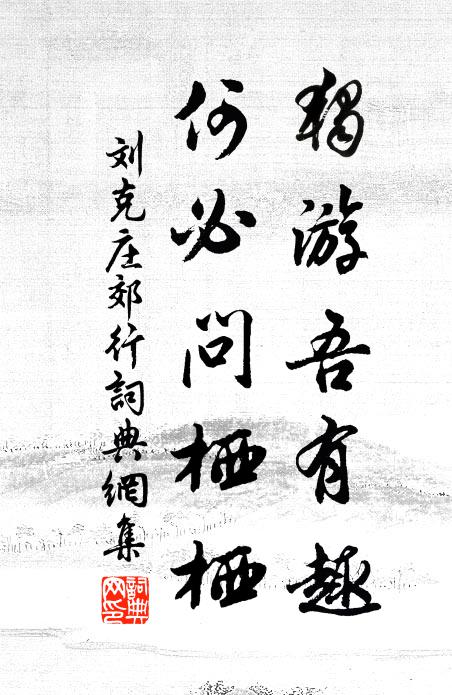 独游吾有趣
何必问栖栖
刘克庄郊行詞典網集
詞典网印